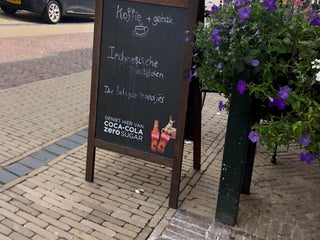 Koffie + gebak
Indonesische
maaltijden
Div belegde broodjes
GENIET HIER VAN
COCA-COLA
zero SUGAR